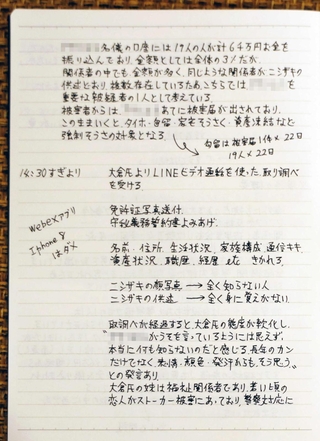 名儀の口座には19人の人が計64万円お金を
振り込んでおり、金額としては全体の3%だが、
関係者の中でも金額が多く、同じような関係者がニシザキの
供述どおり、複数存在しているためこちらでは
重要な被疑者の1人として考えている。
被害者からは、あてに被害届が出されており、
この生まいくと、タイホ・自留・家宅そうさく・資産凍結など
強制そうさの対象となる。
内容は被害届1件×22日
19人×22日
14:30すぎより
大倉氏よりLINEビデオ通話を使った取り調べ
を受ける。
Webexアプリ
Iphone8
はダメ
免許証写真送付。
守秘義務誓約書よみあげ。
名前・住所、生活状況、家族構成、通信キキ
資産状況、職歴、経歴etc きかれる。
ニシザキの顔写真→全く知らない人
ニシザキの供述→全く身に覚えがない。
取調べが経過すると、大倉氏の態度が軟化し、
"がうそを言っているようには思えず、
本当に何も知らないのだと感じる。長年のカン
だけでなく、表情・顔色・発汗からも、そう思う"
との発言あり。
大倉氏の姓は福祉関係者であり、若い頃の
恋人がストーカー被害にあっており、警察対応に